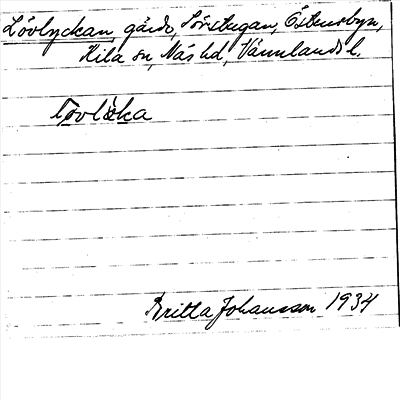 Lövlyckan, gård, Sörstugan, Östensbyn,
Kila sn, Näs hd, Värmlands l.
Lövlöka
Britta Johansson 1934